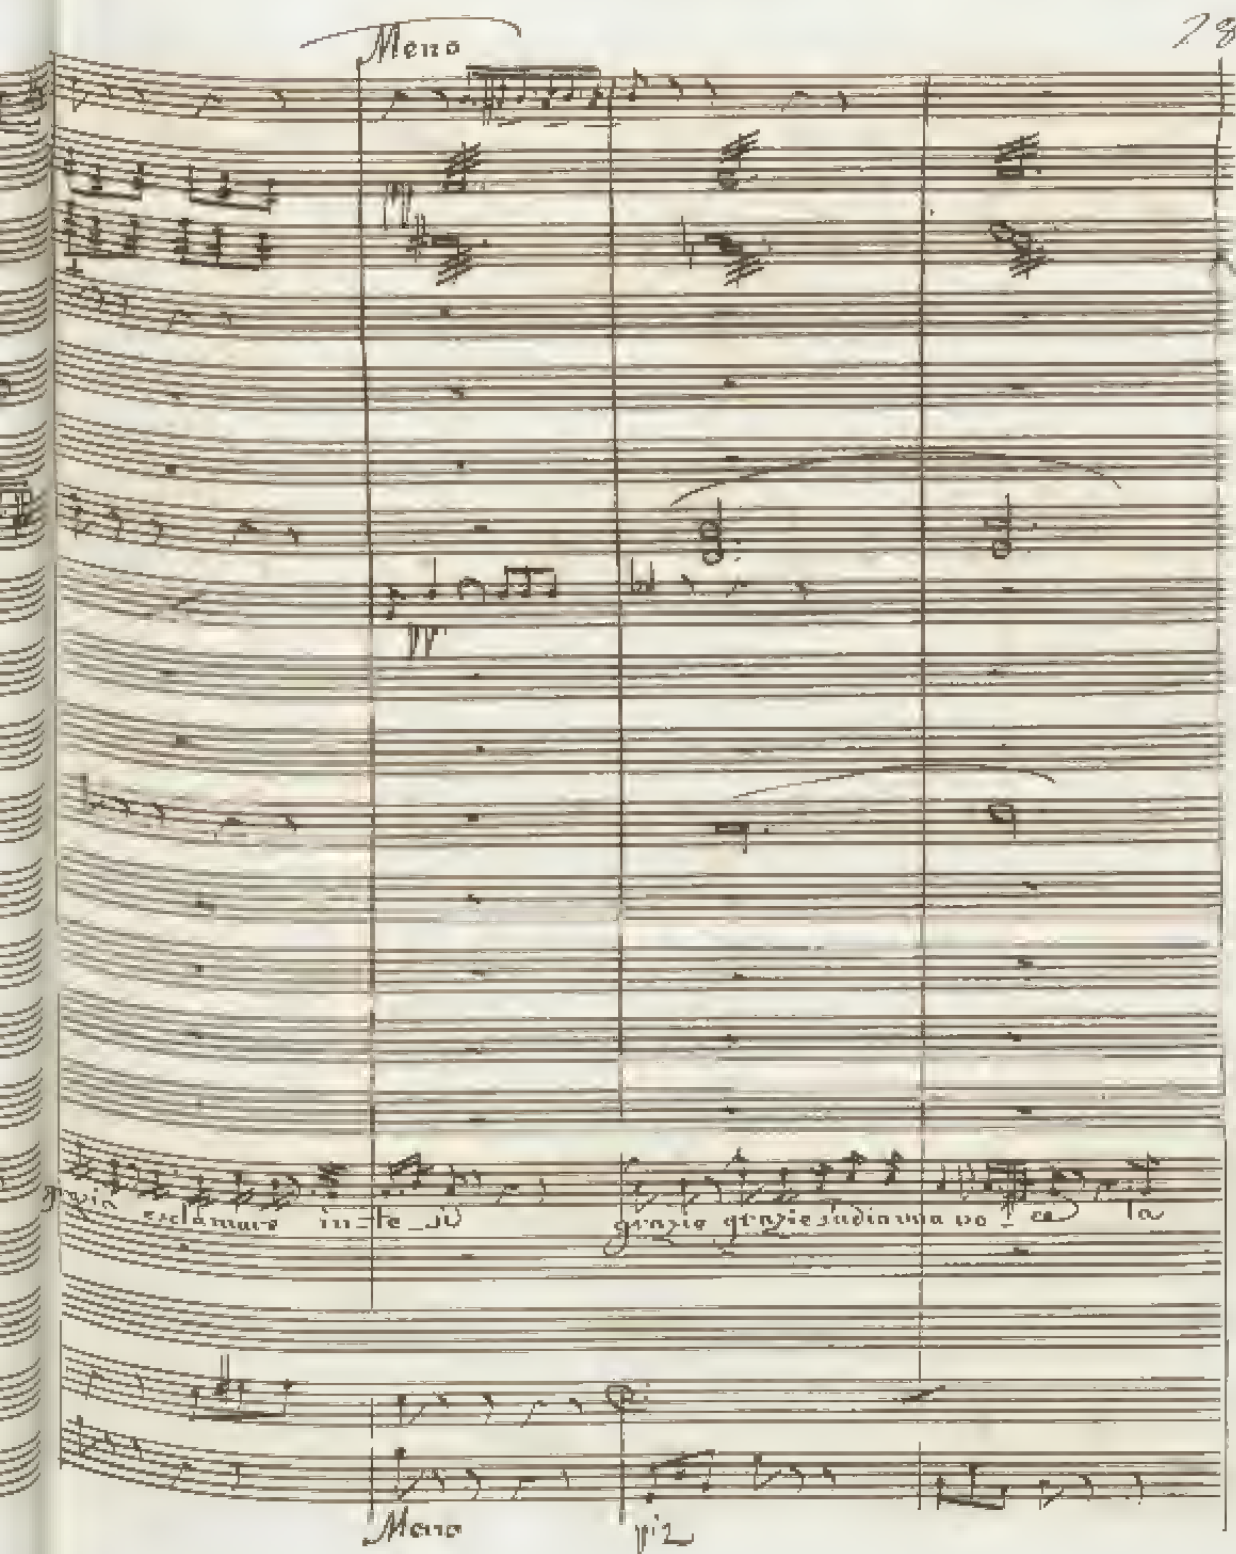 Meno
28
pp
grazia esclamare in_te_si grazie grazie s'udia una vo_ce la
Meno
piz